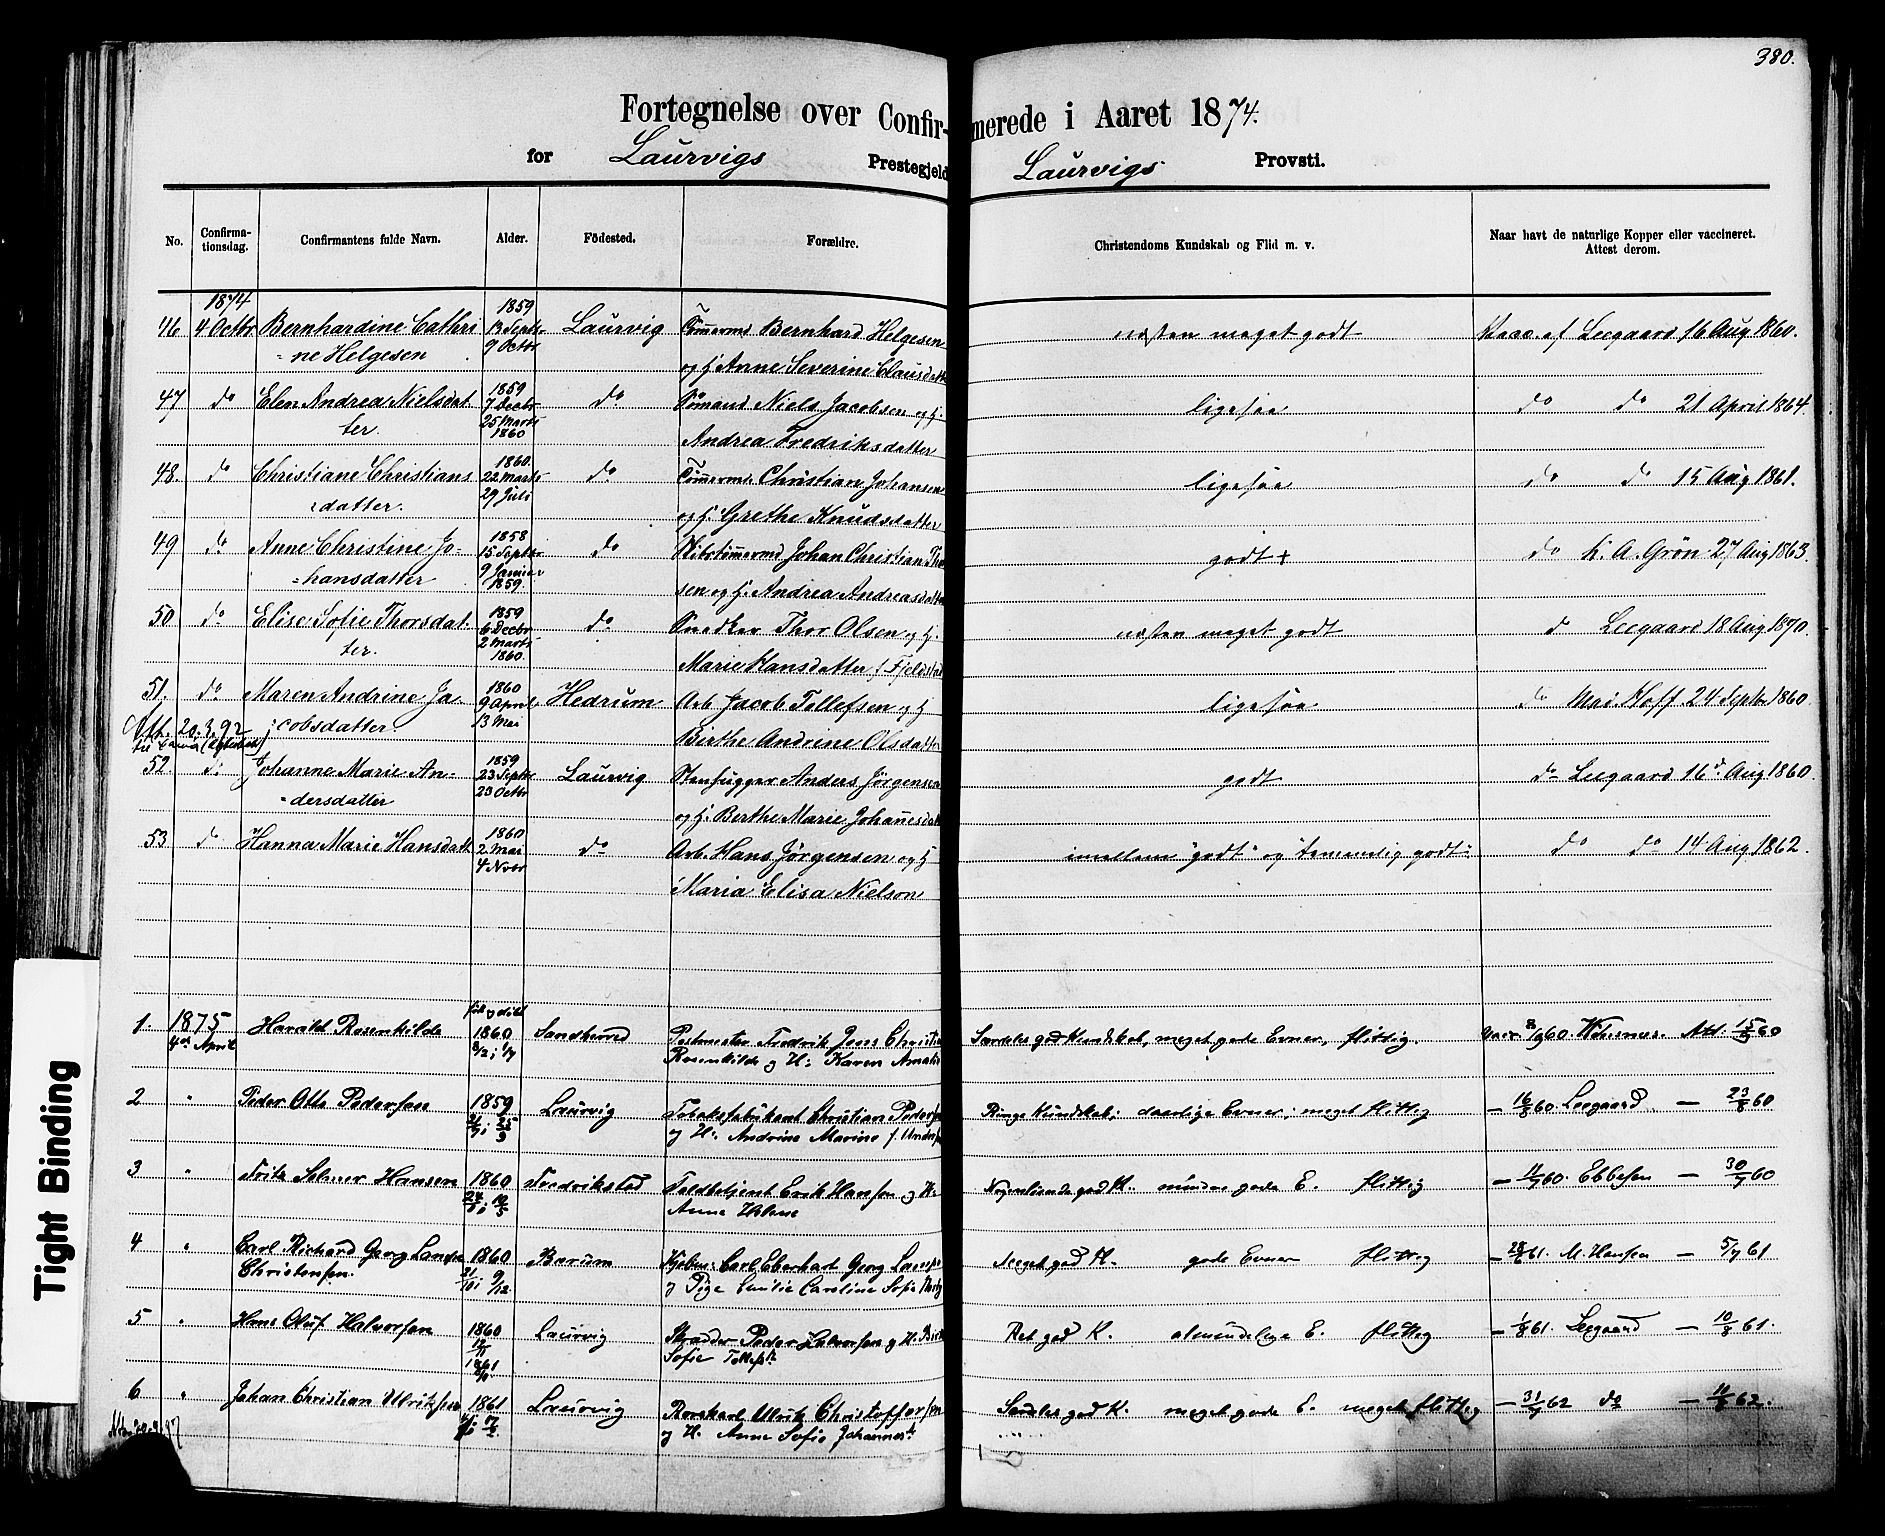 380.
Fortegnelse over Confirmerede i Aaret 1874.
for Laurvigs Prestegjeld Laurvigs Provsti.
No. Confirmationsdag. Confirmantens fulde Navn. Alder. Födested. Forældre. Christendoms Kundskab og Flid m. v. Naar havt de naturlige Kopper eller vaccineret. Attest derom.
1874 1859
46 4 Octbr Bernhardine Cathri 13 Septbr Laurvig Tömermd Bernhard Helgesen næsten meget godt Vacc. af Leegaard 16 Aug 1860.
=ne Helgesen 9 Octbr og h. Anne Severine Clausdatt
47 do Elen Andrea Nielsdat 1859 7 Decbr do Sömand Niels Jacobsen og h. ligesaa do do 21 April 1864
ter. 25 Marts 1860 Andrea Fredriksdatter
48. do Christiane Christians 1860. 22 Marts do Tömermd. Christian Johansen ligesaa do do 15 Aug 1861.
datter. 29 Juli og h. Grethe Knudsdatter
49 do Anne Christine Jo- 1858 15 Septbr do Skibstömermd Johan Christian godt + do K. A. Grön 27 Aug 1863.
=hansdatter 9 Januar 1859. sen og h. Andrea Andreasdatte
50 do Elise Sofie Thorsdat 1859 6 Decbr do Snedker Thor Olsen og h. næsten meget godt do Leegaard 18 Aug 1870.
ter. 2 Marts 1860. Marie Hansdatter f. Fjeldstad
51. do Maren Andrine Ja 1860 9 April Hedrum Arb. Jacob Tollefsen og h ligesaa do Hoff 24 Septbr 1860
Att. 20.3.92 cobsdatter. 13 Mai Birthe Andrine Olsdatter
52. do Johanne Marie An- 1859 23 Septbr Laurvig Stenhugger Anders Jörgensen godt do Leegaard 16 Aug 1860.
=dersdatter 23 Octbr og h. Berthe Marie Johannesdat
53 do Hanna Marie Hansdatt 1860 2 Mai do Arb. Hans Jörgensen og h imellem "godt" og "temmelig godt" do do 14 Aug 1862.
4 Novbr Maria Elisa Nielson
1. 1875 Harald Rosenkilde 1860 Sandherred Postmester Fredrik Jens Christia Særdeles god Kundskab, meget gode Evner, flittig.
4de April Rosenkilde og H: Karen Amalie
2 " Peder Otto Pedersen 1859 Laurvig Tobaksfabrikant Christian Peders Ringe Kundskab; daarlige Evner; meget flittig – 16/8 60. Leegaard – 23/8 60
og H: Andrine Marine f.
3 " Fritz Selmer Hansen 1860 Fredriksted Toldbetjent Erik Hansen og H: Nogenlunde god K. mindre gode E. flittig Ebbesen – 30/7 60
Anne Helene
4 " Carl Richard Georg 1860 Bærum Carl Eberhart Georg Meget god K. gode Evner flittig M. Hansen – 5/7 61
Christensen. og Pige Emilie Caroline Sofie
5 " Hans Oluf Halvorsen 1860 Laurvig Skrædder Peder Halvorsen og H. Ret god K. almindelige E. flittig – 1/8 61. Leegaard – 10/8 61.
1861 Sofie
6 " Johan Christian Ulriksen 1861 Laurvig Ulrik Christoffersen Særdeles god K. meget gode E. meget flittig – 31/7 62 do
og H. Anne Sofie Johannesd.
Tight Binding